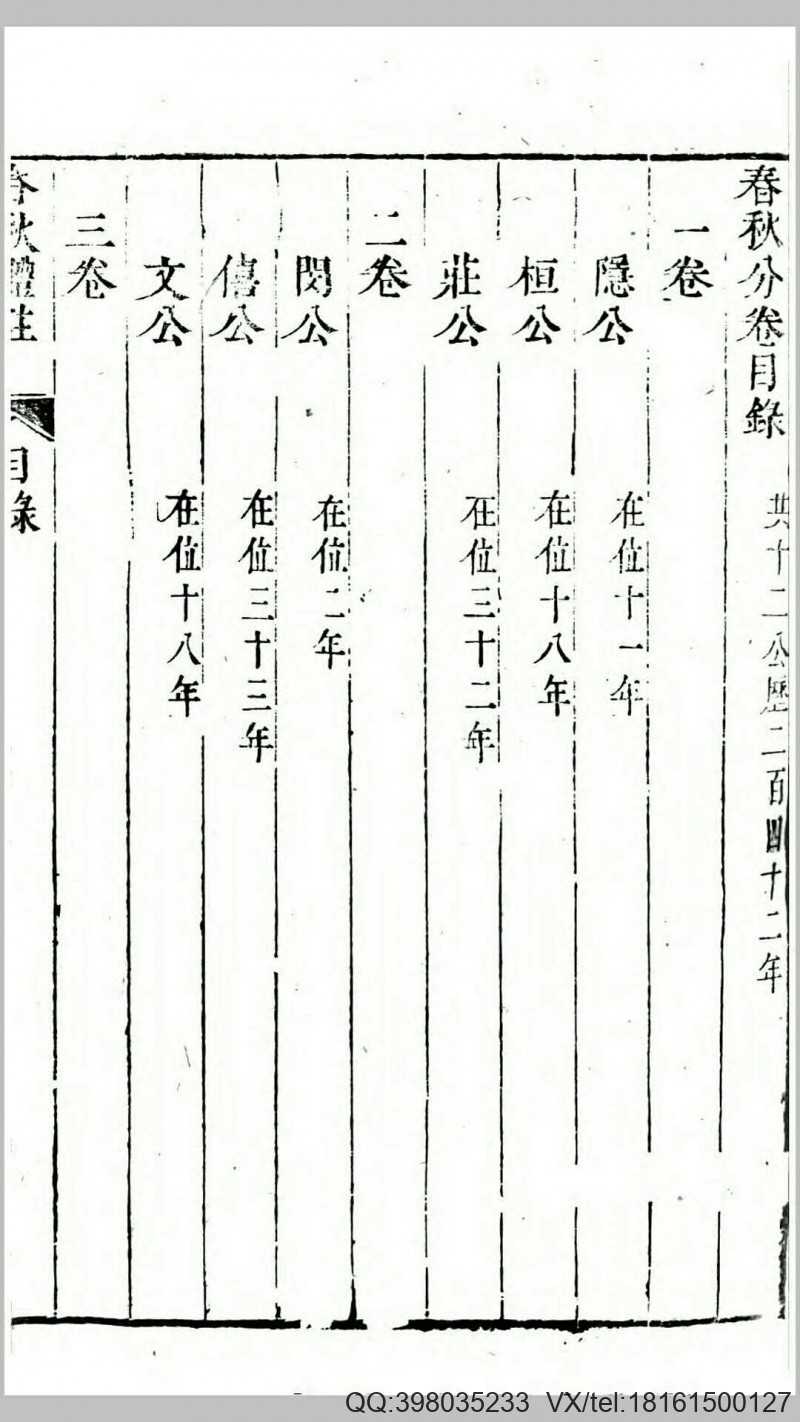 春秋分卷目錄 共十二公歷二百四十二年
一卷
隱公 在位十一年
桓公 在位十八年
莊公 在位三十二年
二卷
閔公 在位二年
僖公 在位三十三年
文公 在位十八年
三卷
春秋體註 目錄
QQ:398035233 VX/tel:18161500127